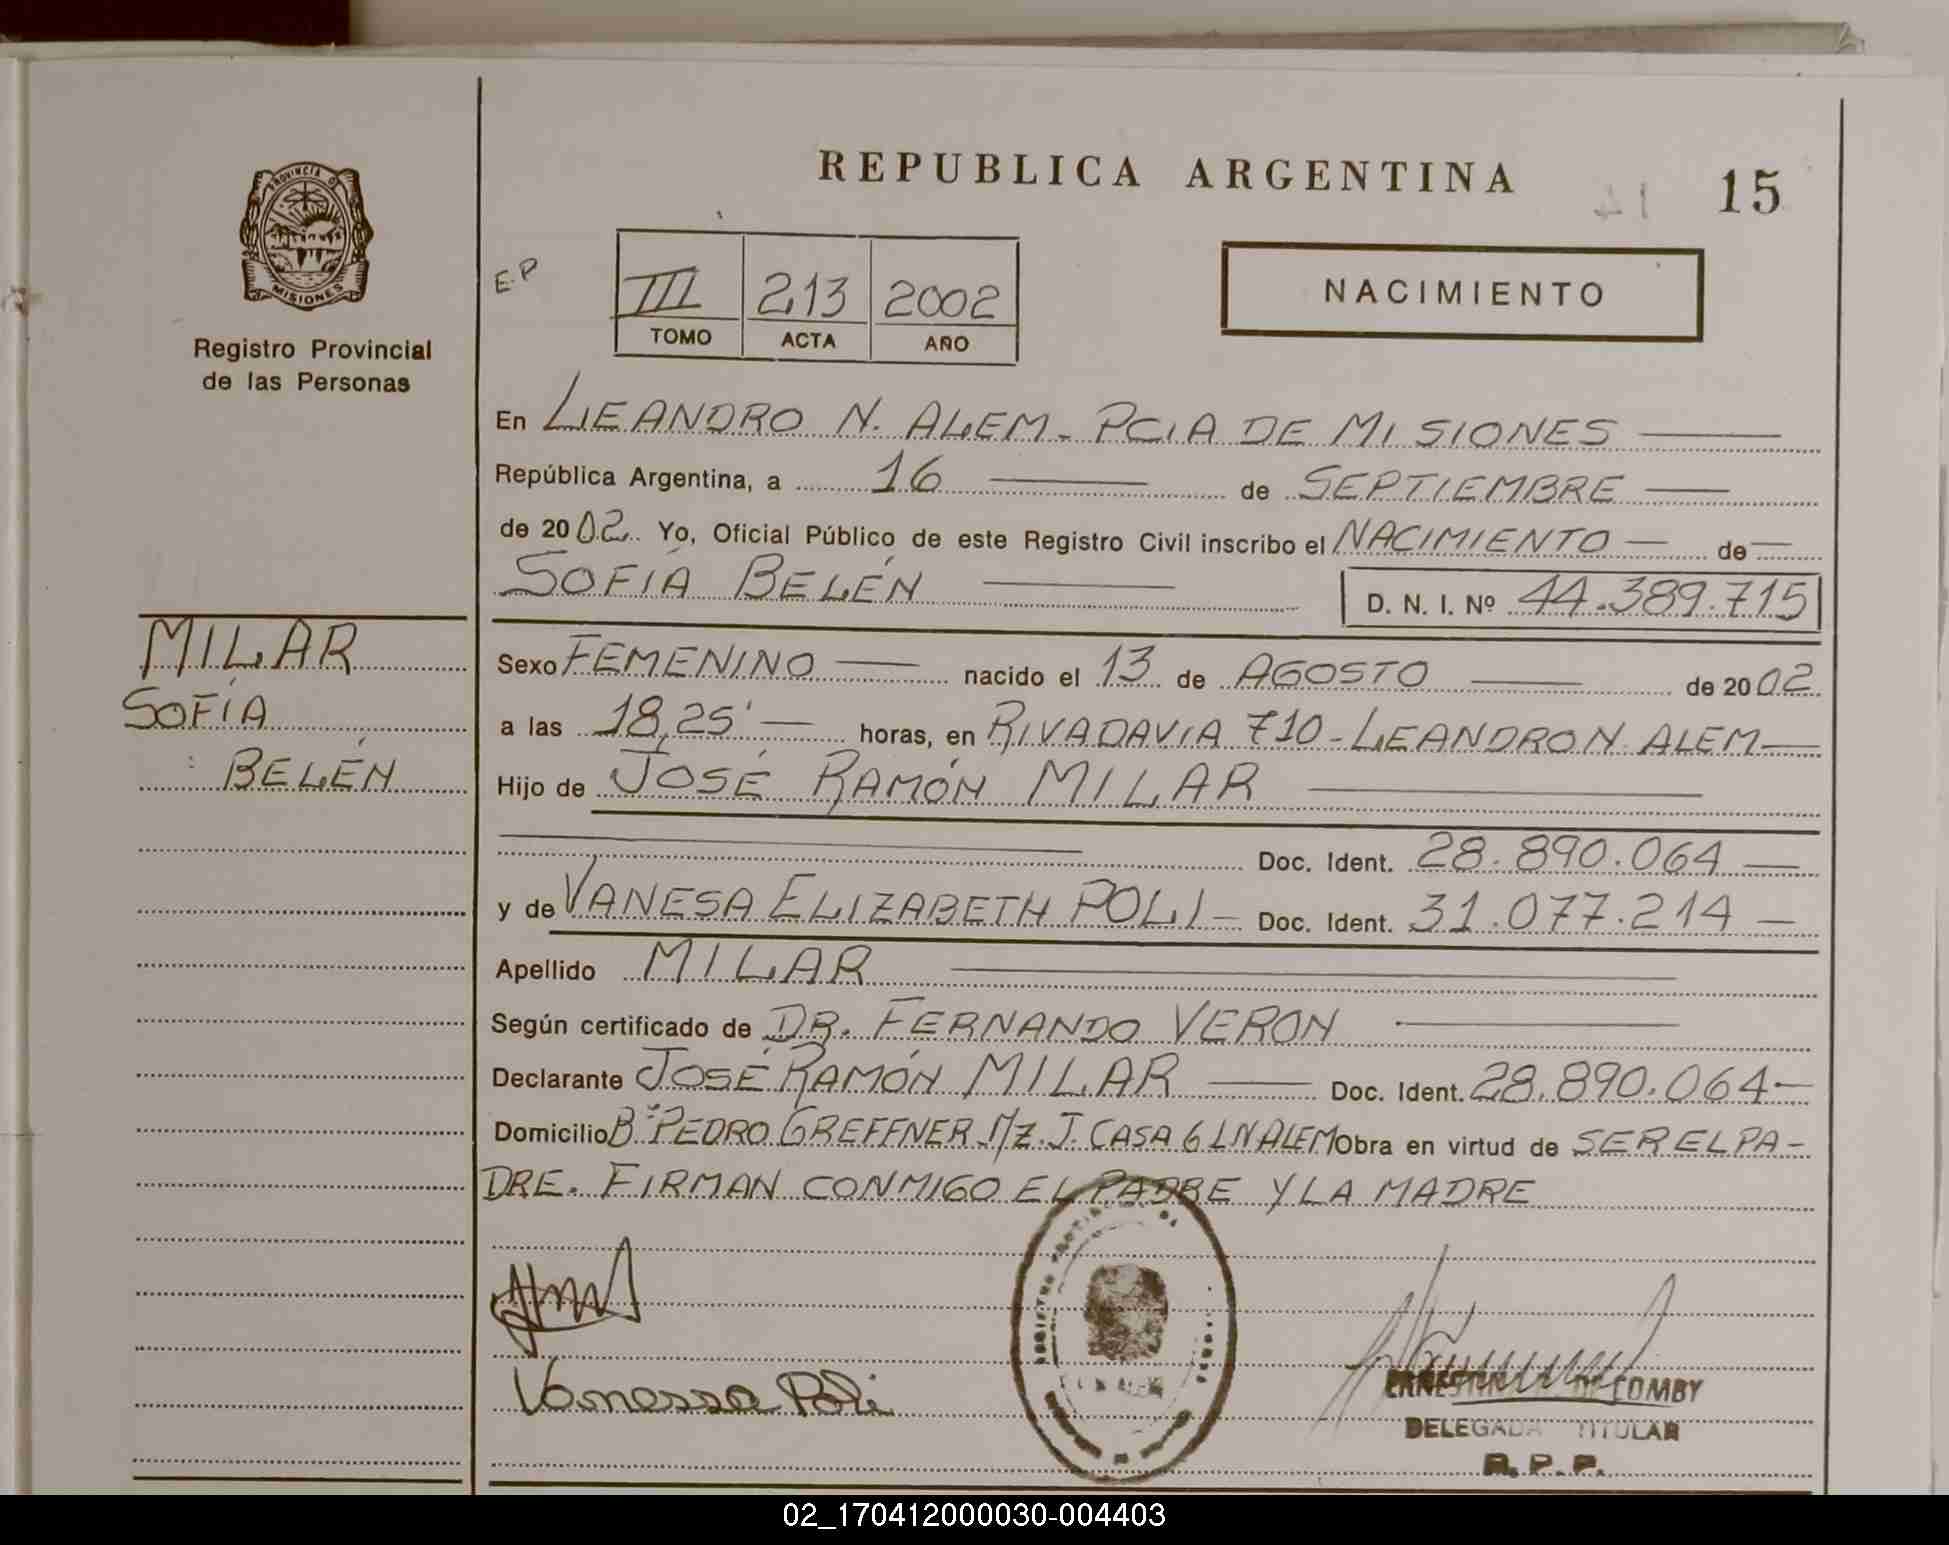 REPUBLICA ARGENTINA
15
PROVINCIA D
MISIONES
Registro Provincial
de las Personas
E.P
III 213 2002
TOMO ACTA AÑO
NACIMIENTO
En LEANDRO N. ALEM - PCIA DE MISIONES
República Argentina, a 16 de SEPTIEMBRE
de 2002 Yo, Oficial Público de este Registro Civil inscribo el NACIMIENTO de
SOFÍA BELÉN D. N. I. Nº 44.389.715
MILAR
SOFÍA
BELÉN
Sexo FEMENINO nacido el 13 de AGOSTO de 2002
a las 18,25' horas, en RIVADAVIA 710 - LEANDRO N. ALEM
Hijo de JOSÉ RAMÓN MILAR
Doc. Ident. 28.890.064
y de VANESA ELIZABETH POLI Doc. Ident. 31.077.214
Apellido MILAR
Según certificado de DR. FERNANDO VERON
Declarante JOSÉ RAMÓN MILAR Doc. Ident. 28.890.064
Domicilio Bº PEDRO GREFFNER Mz. J. CASA 6 LN ALEM Obra en virtud de SER EL PA-
DRE. FIRMAN CONMIGO EL PADRE Y LA MADRE
Vanessa Poli
DE COMBY
DELEGADA TITULAR
R. P. P.
02_170412000030-004403